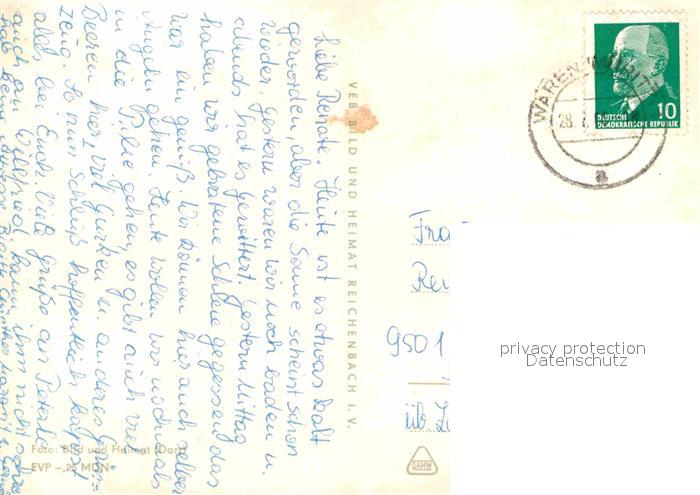 Liebe Renate. Heute ist es etwas kalt
geworden, aber die Sonne scheint schon
wieder. Gestern waren wir noch baden u.
abends hat es gewittert. Gestern Mittag
haben wir gebratene Schleie gegessen das
war ein Genuß. Wir können hier auch selber
Angeln gehen. Heute wollen wir nochmals
in die P. lie gehen, es gibt auch viel
Beeren hier, viel Gurken u. anderes Grün=
zeug. So nun Schluß hoffentlich klappt
alles bei Euch. Viele Grüße an Peterle
auch an Wilfried kann ihm nicht
VEB BILD UND HEIMAT REICHENBACH I. V.
Foto: Bild und Heimat (Dorr)
EVP -,25 MDN
WAREN (MÜRITZ)
28.7.
a
10
DEUTSCHE
DEMOKRATISCHE REPUBLIK
9501
üb.
privacy protection
Datenschutz
DAMW